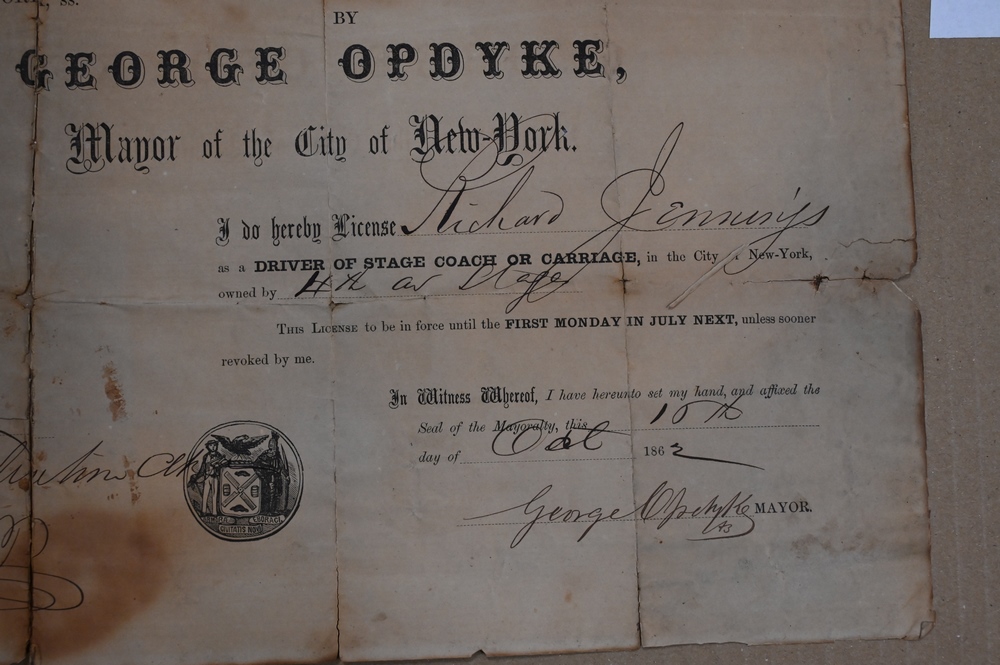 ss.
BY
GEORGE OPDYKE,
Mayor of the City of New-York.
I do hereby License Richard Jennings
as a DRIVER OF STAGE COACH OR CARRIAGE, in the City New-York,
owned by 4th av Stages
THIS LICENSE to be in force until the FIRST MONDAY IN JULY NEXT, unless sooner
revoked by me.
In Witness Whereof, I have hereunto set my hand, and affixed the
Seal of the Mayoralty, this 15th
day of Oct 1862
George Opdyke MAYOR.